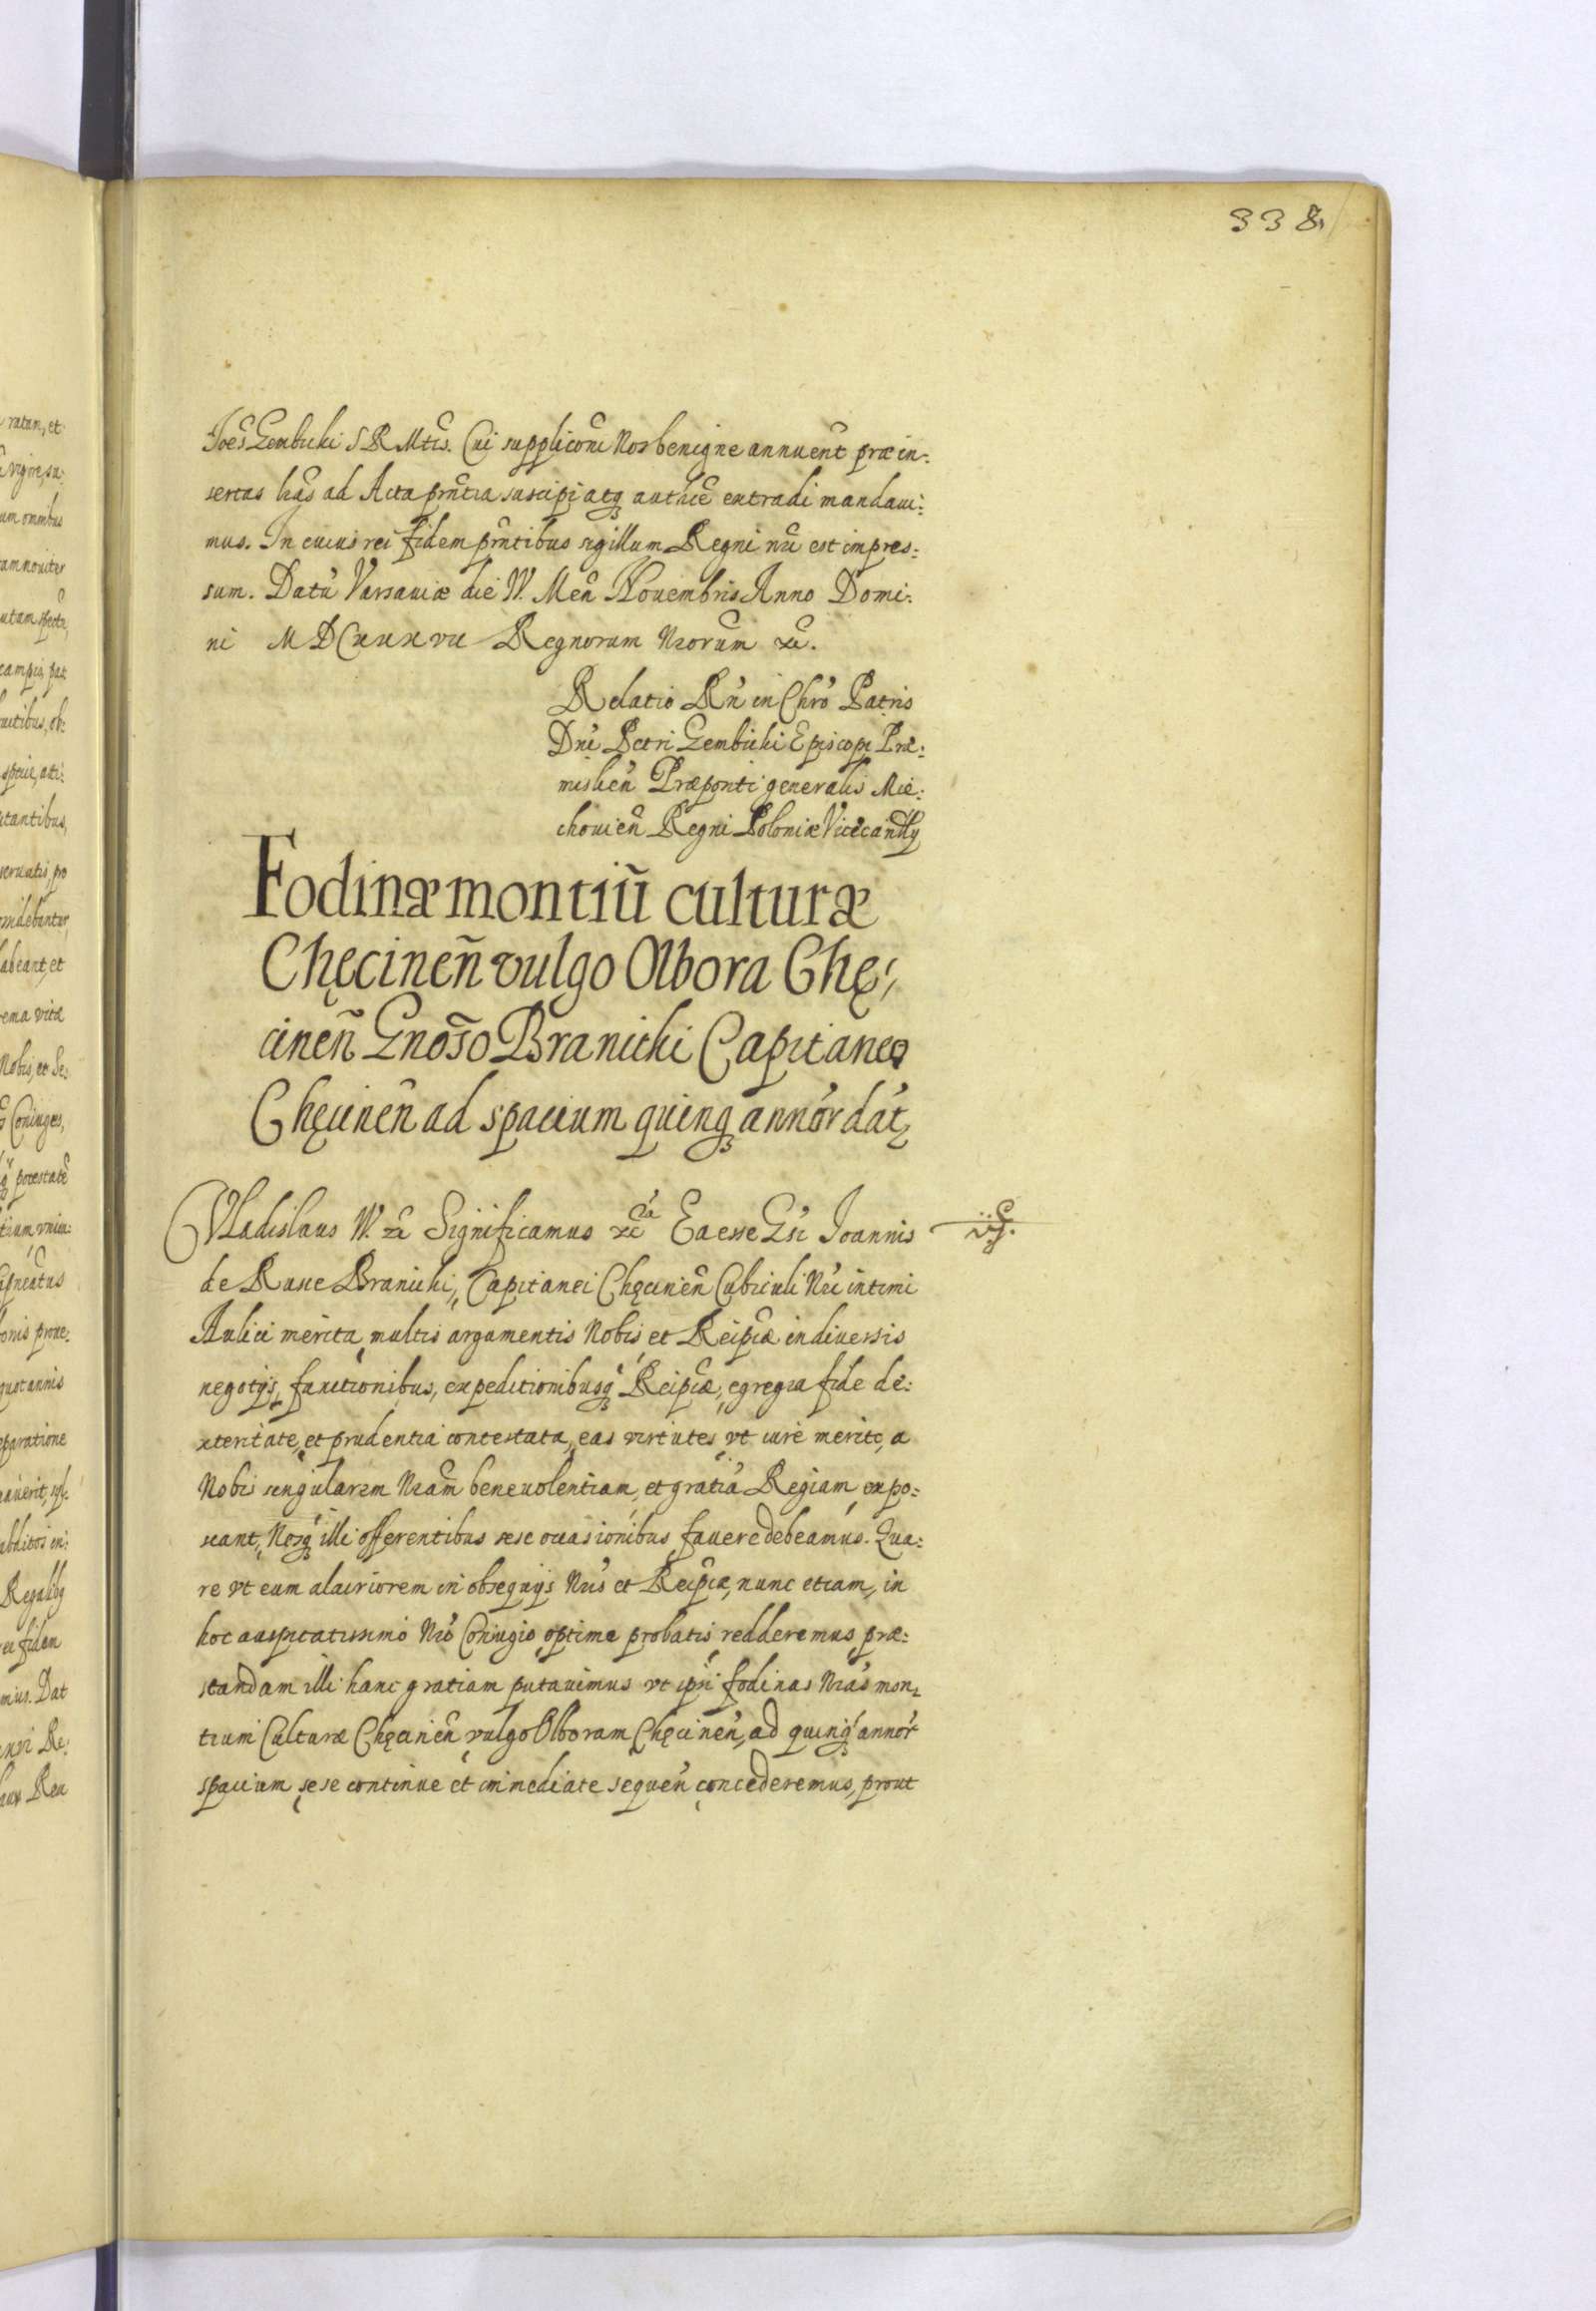 338
Joēs Gembicki S R Mtis. Cui supplicōni Nos benigne annuent̄ præin-
sertas lr̄as ad Acta prn̄tia suscipi atq̨ auth̄ce extradi mandaui-
mus. In cuius rei fidem prn̄tibus sigillum Regni nr̄i est impres-
sum. Datū Varsauiæ die IV. Men̄ Nouembris Anno Domi-
ni MDCxxxvii Regnorum Nrorum xc̄.
Relatio Rn̄ in Chrō Patris
Dnī Petri Gembicki Episcopi Præ-
mislien̄ Præponti generalis Mie-
chouien̄ Regni Poloniæ Vicecan̄ȳ
Fodinæ montiū culturæ
Chęcinen̄ vulgo Olbora Chę-
cinen̄ Gnōso Branicki Capitaneo
Chęcinen̄ ad spacium quinq̨ annōr dat̨
Vladislaus IV. xc̄ Significamus xc̄ Ea esse Gsi Joannis
de Rusce Branicki, Capitanei Chęcinien̄ Cubiculi Nri intimi
Aulici merita, multis argumentis Nobis, et Reipc̄æ in diuersis
negotÿs, functionibus, expeditionibusq̨ Reipc̄æ, egregia fide de-
xteritate, et prudentia contestata, eas virtutes, vt iure merito, a
Nobis singularem Nram̄ beneuolentiam, et gratiā Regiam, expo-
scant, Nosq̨ illi offerentibus sese occasionibus fauere debeamus. Qua-
re vt eum alacriorem in obsequÿs Nris et Reipc̄æ, nunc etiam, in
hoc auspicatissimo Nrō Coniugio optime probatis redderemus, præ-
standam illi hanc gratiam putauimus vt ipsi fodinas Nras mon-
tium Culturæ Chęcinien̄ vulgo Olboram Chęcinen̄, ad quinq̨ annōr
spacium sese continue et immediate sequen̄ concederemus, prout